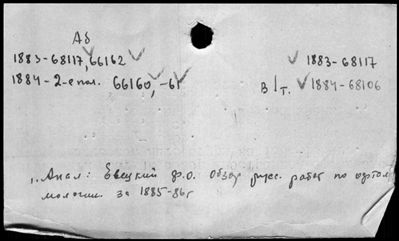 Аб
1883-68117, 66162
1883-68117
1884-2-е пол. 66160, -61
в 1 т. 1884-68106
„Анал: Евецкий Ф.О. Обзор русс. работ по офтал
мологии за 1885-86г